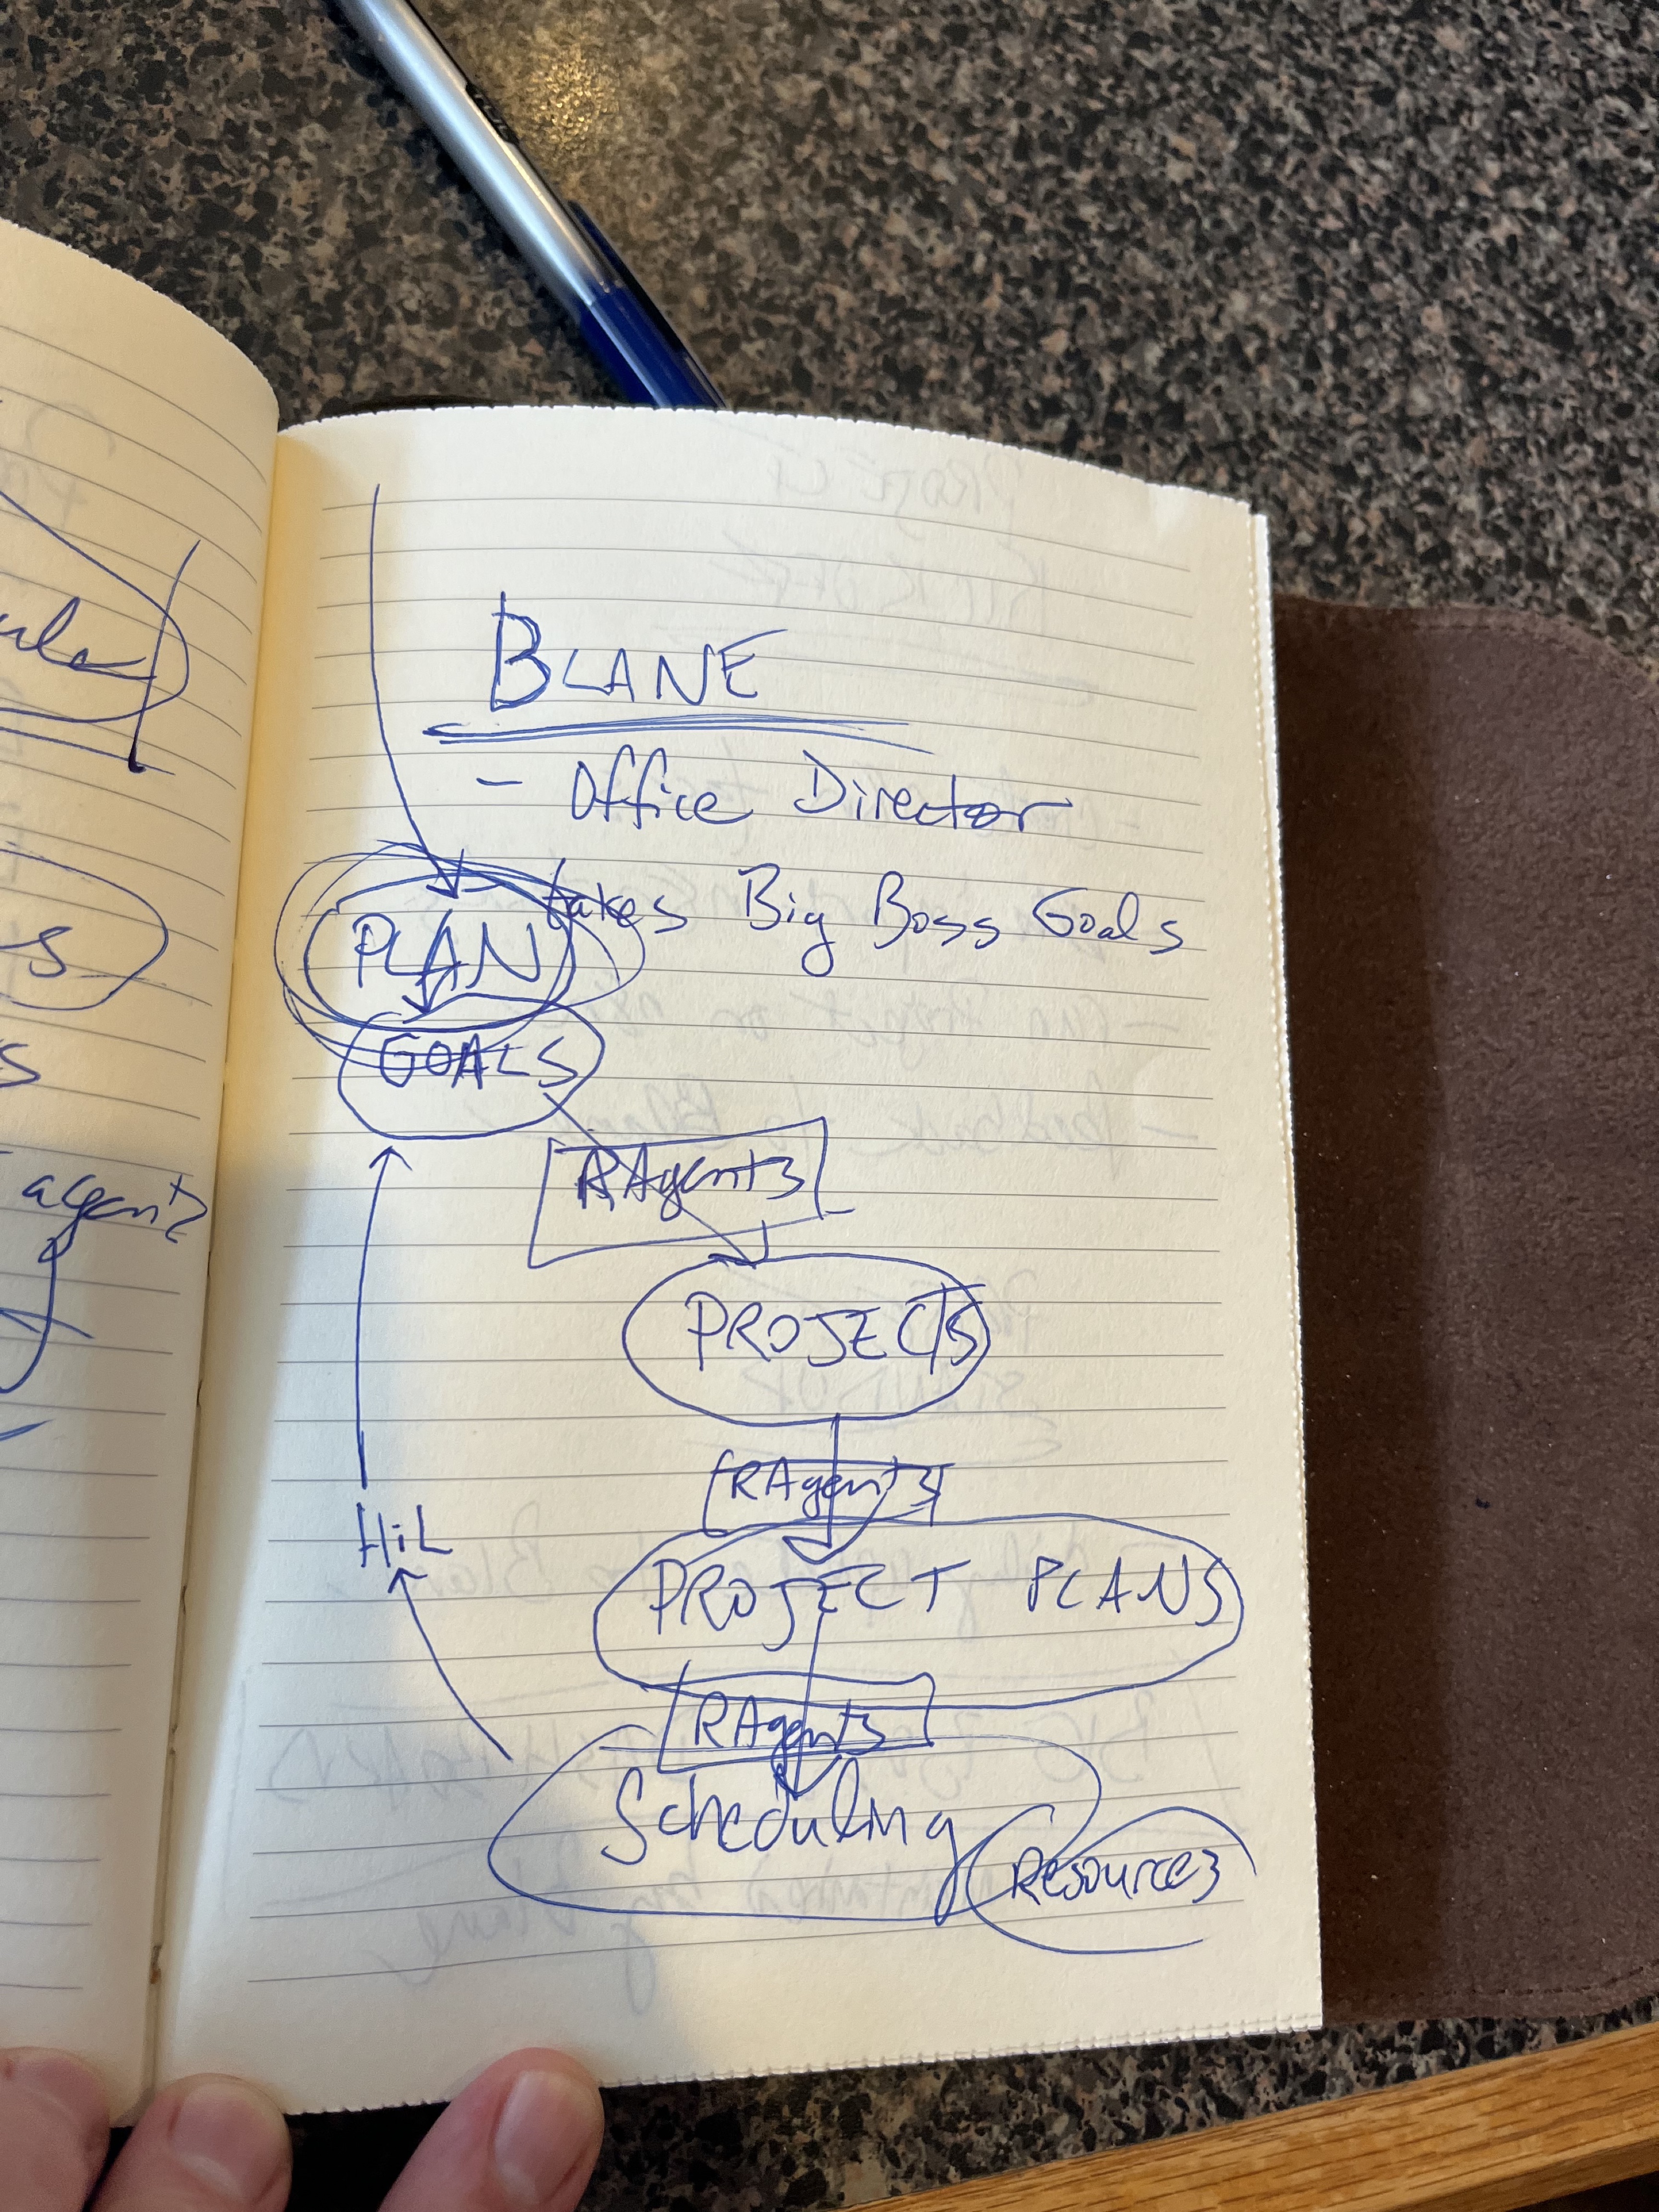 BLANE
- Office Director
takes Big Boss Goals
PLAN
GOALS
RAgents
PROJECTS
RAgents
HiL
PROJECT PLANS
RAgents
Scheduling
Resources
agents